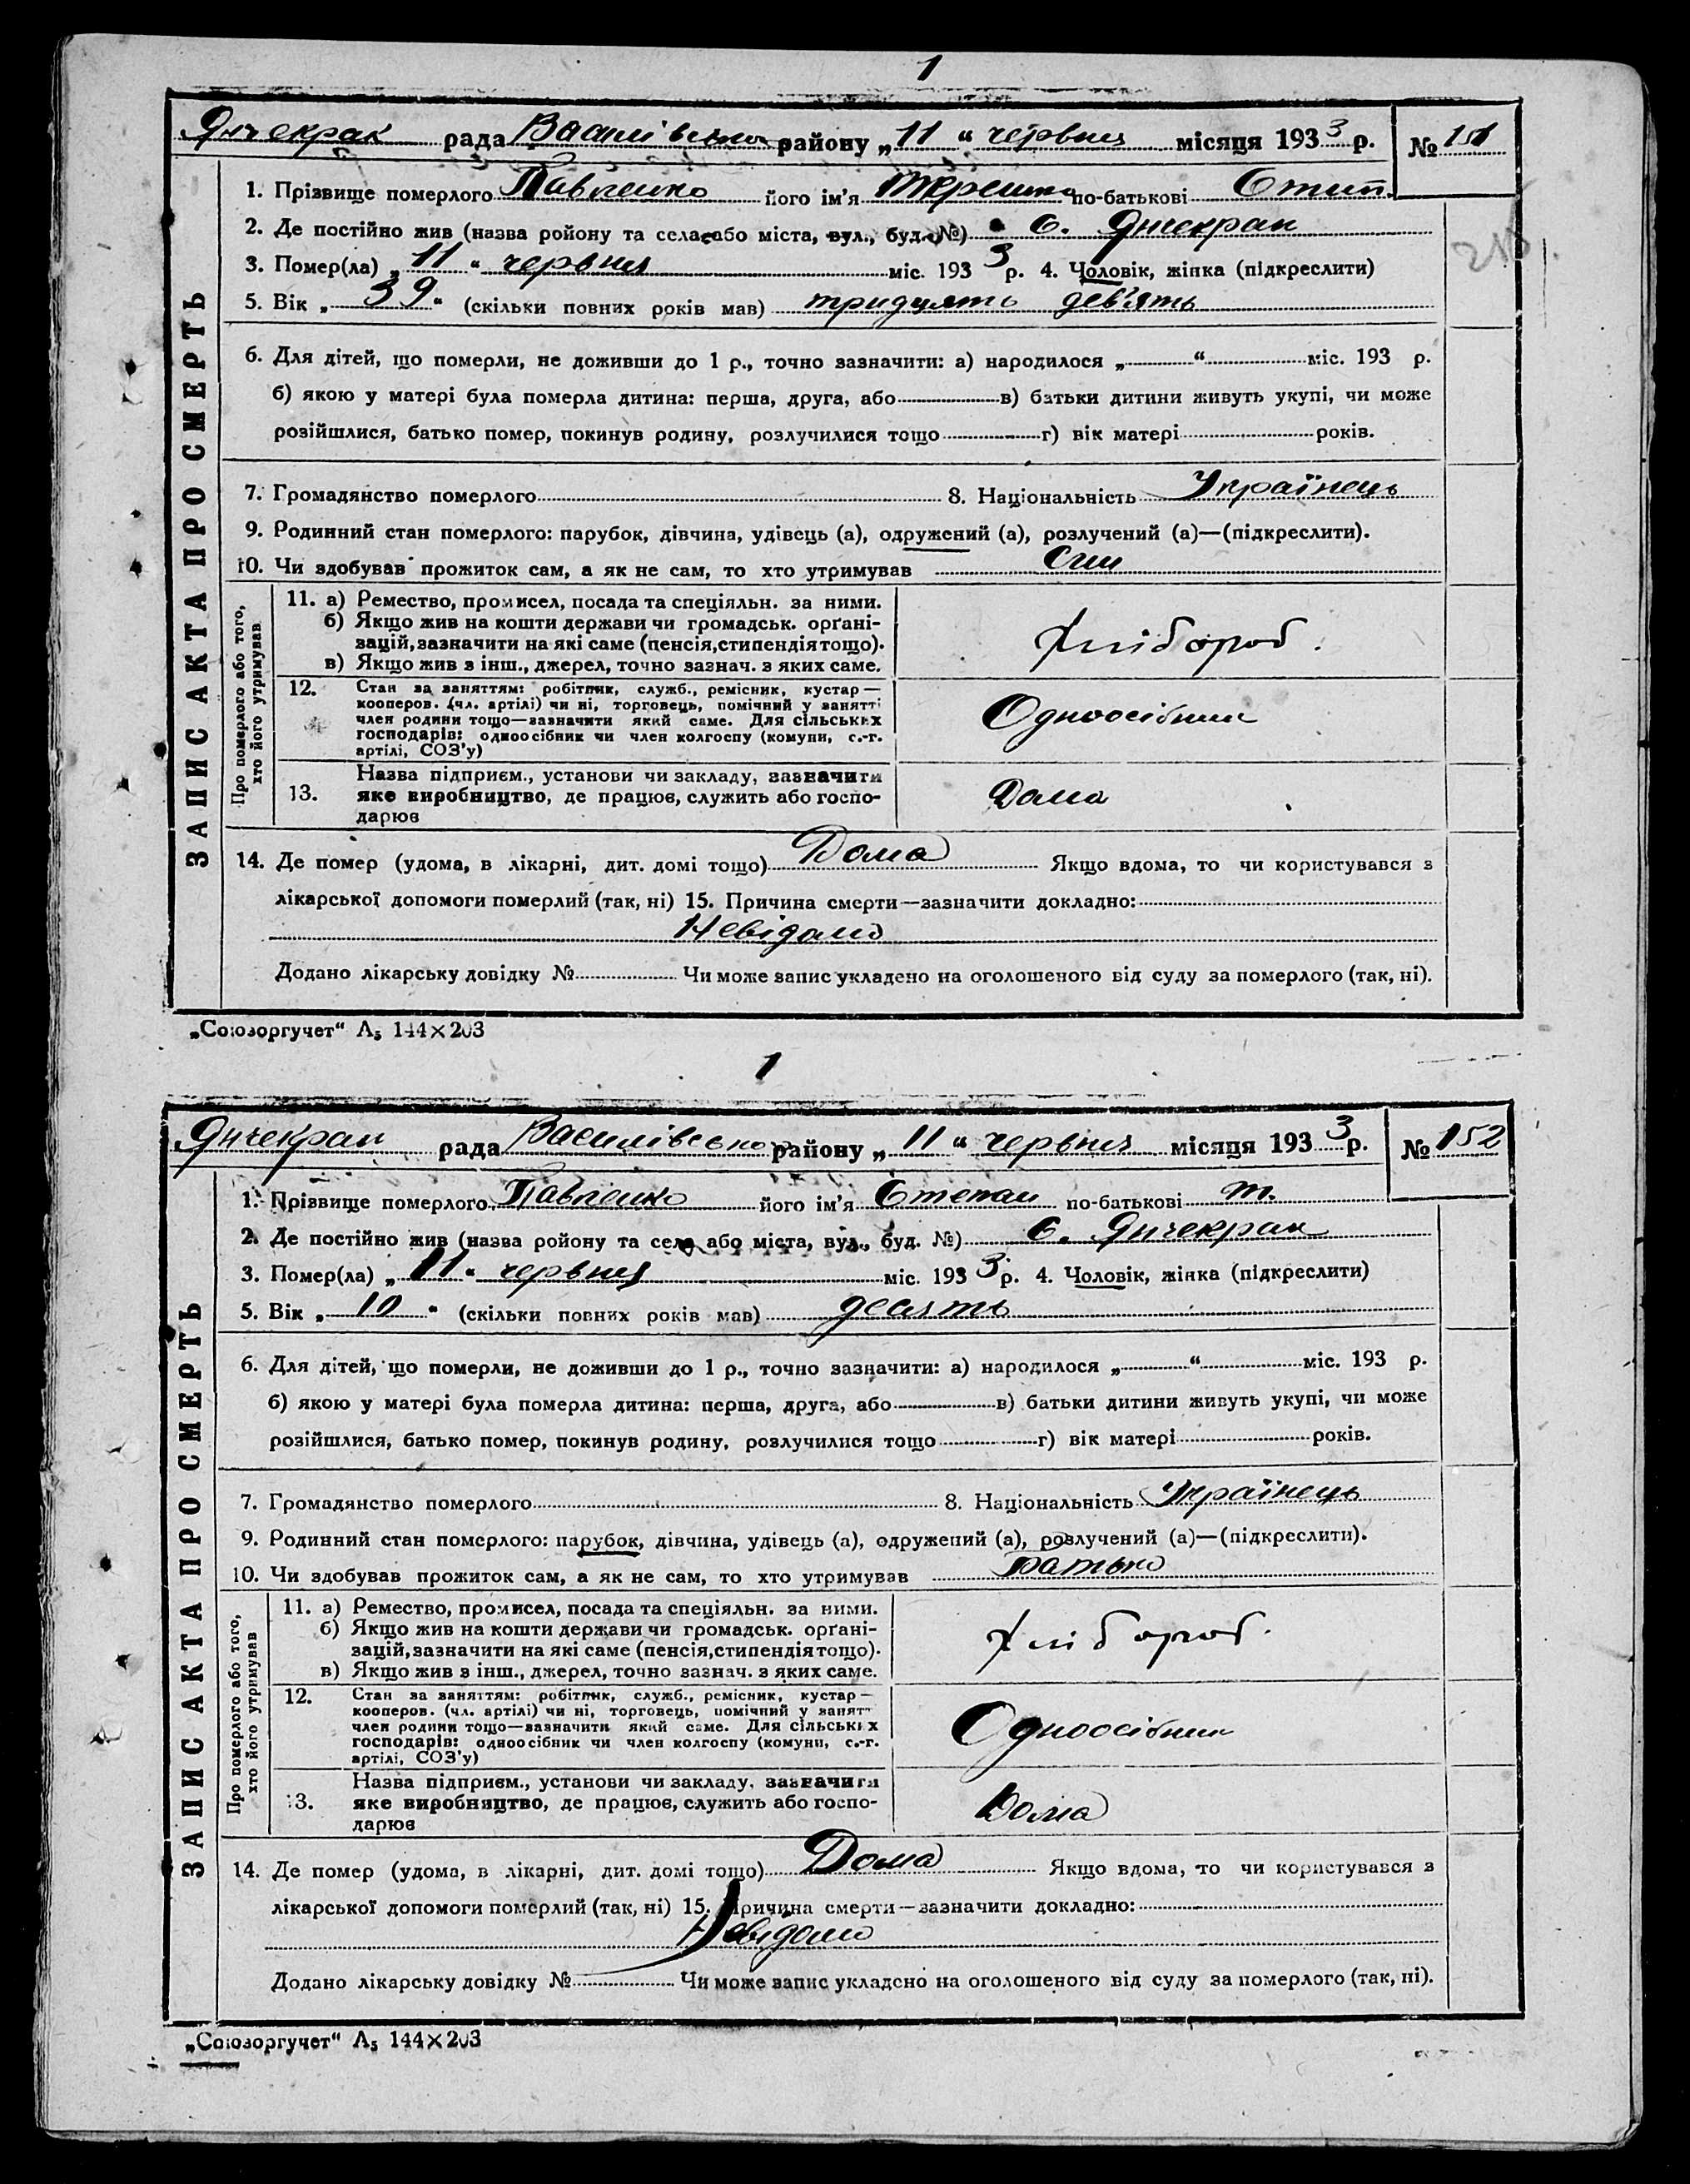 1
Янчекрак рада Василівського району „11“ червня місяця 1933 р. № 151
1. Прізвище померлого Павленко його ім'я Терешко по-батькові Стип.
2. Де постійно жив (назва ройону та села або міста, вул., буд. №) с. Янчекрак
3. Помер(ла) „11“ червня міс. 1933 р. 4. Чоловік, жінка (підкреслити)
5. Вік „39“ (скільки повних років мав) тридцять дев'ять
6. Для дітей, що померли, не доживши до 1 р., точно зазначити: а) народилося „ “ міс. 193 р.
б) якою у матері була померла дитина: перша, друга, або в) батьки дитини живуть укупі, чи може
розійшлися, батько помер, покинув родину, розлучилися тощо г) вік матері років.
7. Громадянство померлого 8. Національність Українець
9. Родинний стан померлого: парубок, дівчина, удівець (а), одружений (а), розлучений (а)—(підкреслити).
10. Чи здобував прожиток сам, а як не сам, то хто утримував Сам
ЗАПИС АКТА ПРО СМЕРТЬ
Про померлого або того,
хто його утримував
11. а) Ремество, промисел, посада та спеціяльн. за ними.
б) Якщо жив на кошти держави чи громадськ. орґані-
зацій, зазначити на які саме (пенсія, стипендія тощо).
в) Якщо жив з інш., джерел, точно зазнач. з яких саме.
Хлібороб.
12. Стан за заняттям: робітник, служб., ремісник, кустар—
кооперов. (чл. артілі) чи ні, торговець, помічний у занятті
член родини тощо—зазначити який саме. Для сільських
господарів: одноосібник чи член колгоспу (комуни, с.-г.
артілі, СОЗ'у)
Одноосібник
13. Назва підприєм., установи чи закладу, зазначити
яке виробництво, де працює, служить або госпо-
дарює
Дома
14. Де помер (удома, в лікарні, дит. домі тощо) Дома Якщо вдома, то чи користувався з
лікарської допомоги померлий (так, ні) 15. Причина смерти—зазначити докладно:
Невідомо
Додано лікарську довідку № Чи може запис укладено на оголошеного від суду за померлого (так, ні).
„Союзоргучет“ А₅ 144×203
1
Янчекрак рада Василівського району „11“ червня місяця 1933 р. № 152
1. Прізвище померлого Павленко його ім'я Степан по-батькові Т.
2. Де постійно жив (назва ройону та села або міста, вул., буд. №) с. Янчекрак
3. Помер(ла) „11“ червня міс. 1933 р. 4. Чоловік, жінка (підкреслити)
5. Вік „10“ (скільки повних років мав) десять
6. Для дітей, що померли, не доживши до 1 р., точно зазначити: а) народилося „ “ міс. 193 р.
б) якою у матері була померла дитина: перша, друга, або в) батьки дитини живуть укупі, чи може
розійшлися, батько помер, покинув родину, розлучилися тощо г) вік матері років.
7. Громадянство померлого 8. Національність Українець
9. Родинний стан померлого: парубок, дівчина, удівець (а), одружений (а), розлучений (а)—(підкреслити).
10. Чи здобував прожиток сам, а як не сам, то хто утримував Батько
ЗАПИС АКТА ПРО СМЕРТЬ
Про померлого або того,
хто його утримував
11. а) Ремество, промисел, посада та спеціяльн. за ними.
б) Якщо жив на кошти держави чи громадськ. орґані-
зацій, зазначити на які саме (пенсія, стипендія тощо).
в) Якщо жив з інш., джерел, точно зазнач. з яких саме.
Хлібороб.
12. Стан за заняттям: робітник, служб., ремісник, кустар—
кооперов. (чл. артілі) чи ні, торговець, помічний у занятт
член родини тощо—зазначити який саме. Для сільських
господарів: одноосібник чи член колгоспу (комуни, с.-г.
артілі, СОЗ'у)
Одноосібник
13. Назва підприєм., установи чи закладу, зазначити
яке виробництво, де працює, служить або госпо-
дарює
Дома
14. Де помер (удома, в лікарні, дит. домі тощо) Дома Якщо вдома, то чи користувався з
лікарської допомоги померлий (так, ні) 15. Причина смерти—зазначити докладно:
Невідомо
Додано лікарську довідку № Чи може запис укладено на оголошеного від суду за померлого (так, ні).
„Союзоргучет“ А₅ 144×203